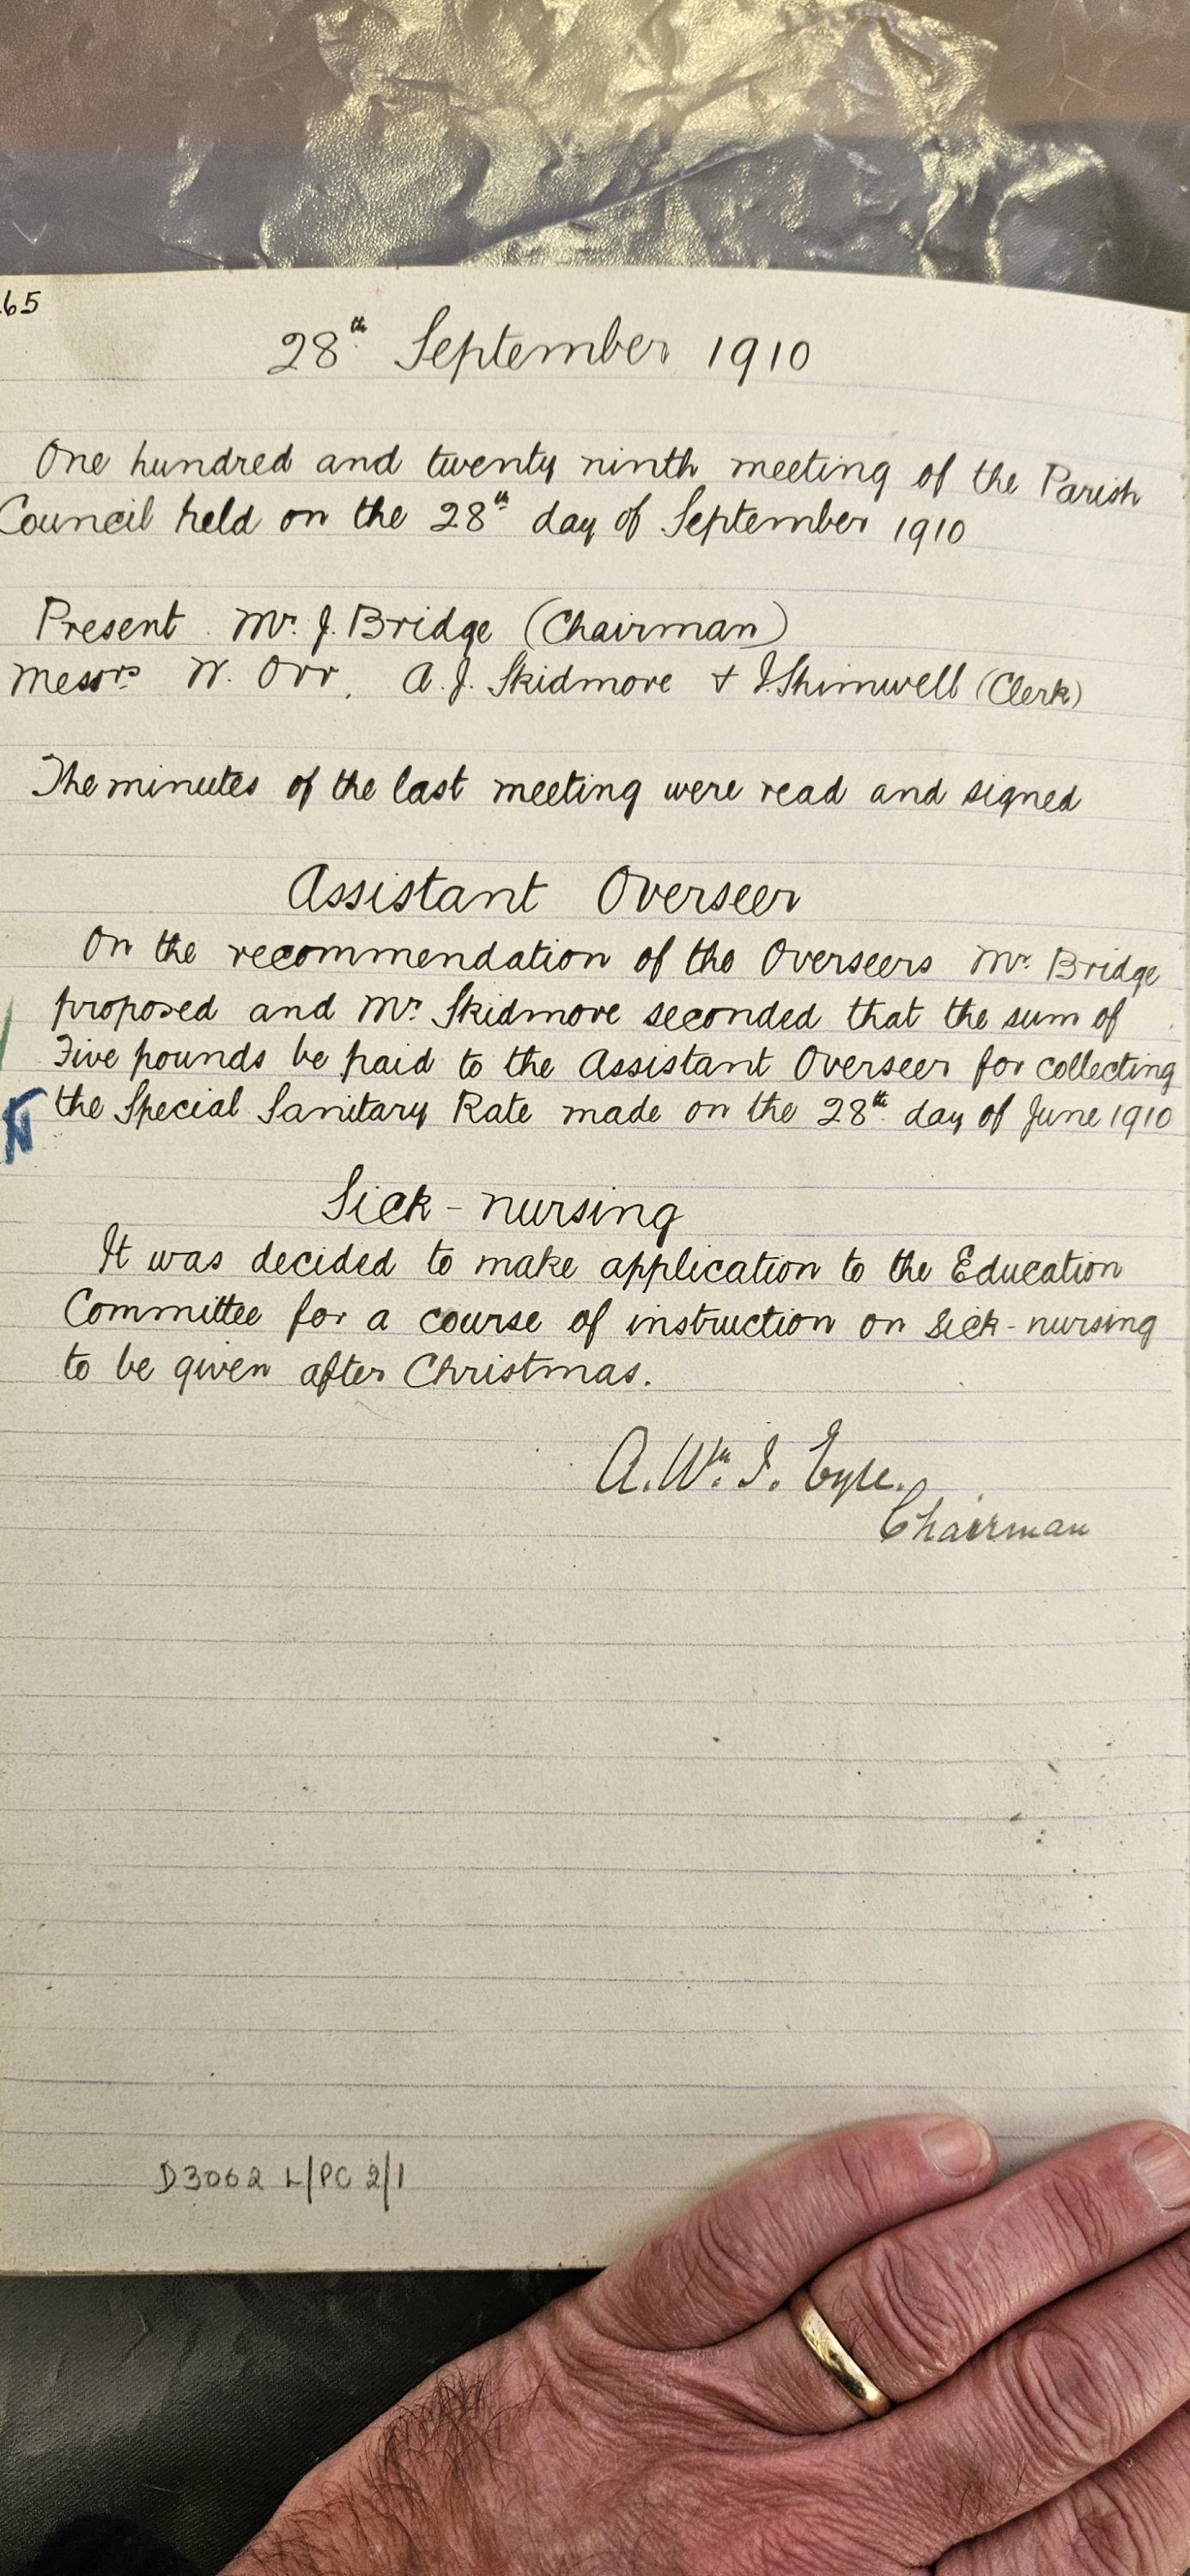 65
28th September 1910
One hundred and twenty ninth meeting of the Parish
Council held on the 28th day of September 1910
Present Mr. J. Bridge (Chairman)
Messrs W. Orr, A. J. Skidmore + J. Shimwell (Clerk)
The minutes of the last meeting were read and signed
Assistant Overseer
On the recommendation of the Overseers Mr. Bridge
proposed and Mr. Skidmore seconded that the sum of
Five pounds be paid to the Assistant Overseer for collecting
the Special Sanitary Rate made on the 28th day of June 1910
Sick-nursing
It was decided to make application to the Education
Committee for a course of instruction on Sick-nursing
to be given after Christmas.
A. Wm. I. Eyre.
Chairman
D3062 L/PC 2/1